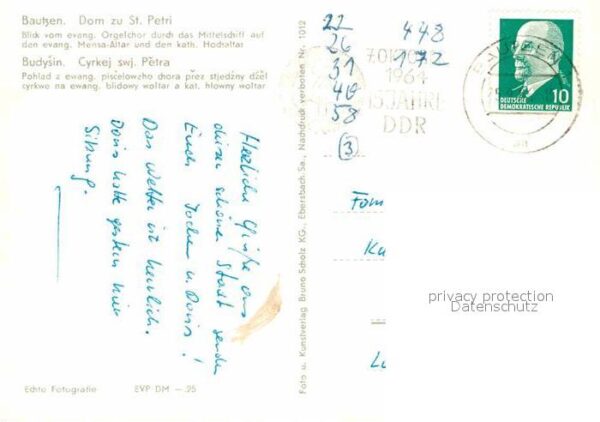 Bautzen. Dom zu St. Petri
Blick vom evang. Orgelchor durch das Mittelschiff auf
den evang. Mensa-Altar und den kath. Hochaltar
Budyšin. Cyrkej swj. Pětra
Pohlad z ewang. pisćelowzho chora přez stjedźny dźěl
cyrkwe na ewang. blidowy wołtar a kat. hłowny wołtar
Herzliche Grüße aus
dieser schönen Stadt senden
Euch Jochen u. Doris!
Das Wetter ist herrlich.
Doris hatte gestern hier
Sitzung.
Echte Fotografie EVP DM –.25
Foto u. Kunstverlag Bruno Scholz KG., Ebersbach Sa., Nachdruck verboten Nr. 1012
22
26
31
40
58
(3)
448
172
7. OKTOBER
1964
15 JAHRE
DDR
BAUTZEN
DEUTSCHE
DEMOKRATISCHE REPUBLIK 10
Fam
Ku
privacy protection
Datenschutz